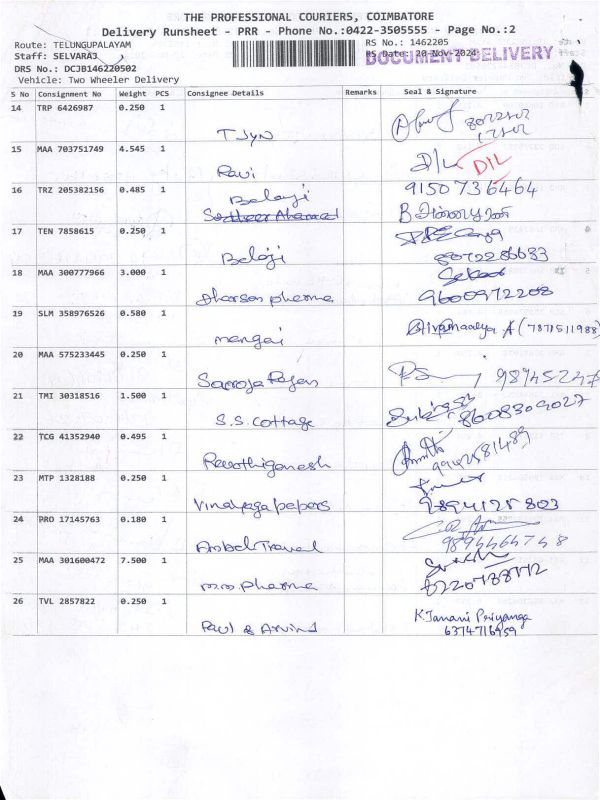 THE PROFESSIONAL COURIERS, COIMBATORE
Delivery Runsheet - PRR - Phone No.:0422-3505555 - Page No.:2
Route: TELUNGUPALAYAM
RS No.: 1462205
Staff: SELVARAJ
RS Date: 20-Nov-2024
DOCUMENT DELIVERY
DRS No.: DCJB146220502
Vehicle: Two Wheeler Delivery
S No Consignment No Weight PCS Consignee Details Remarks Seal & Signature
14 TRP 6426987 0.250 1
TJYN
15 MAA 703751749 4.545 1
Ravi
D/L DIL
16 TRZ 205382156 0.485 1
Balaji
9150736464
17 TEN 7858615 0.250 1
Balaji
8072286633
18 MAA 300777966 3.000 1
Dharsan pharma
9600972208
19 SLM 358976526 0.580 1
mangai
(7871511988)
20 MAA 575233445 0.250 1
Saroja Rajan
PS
21 TMI 30318516 1.500 1
S.S. Cottage
22 TCG 41352940 0.495 1
Revathiganesh
23 MTP 1328188 0.250 1
Vinayaga papers
9894125803
24 PRO 17145763 0.180 1
Ambal Travel
9894464748
25 MAA 301600472 7.500 1
m.m. pharma
26 TVL 2857822 0.250 1
Paul & Arvind
K. Janani Priyanga
6374716959